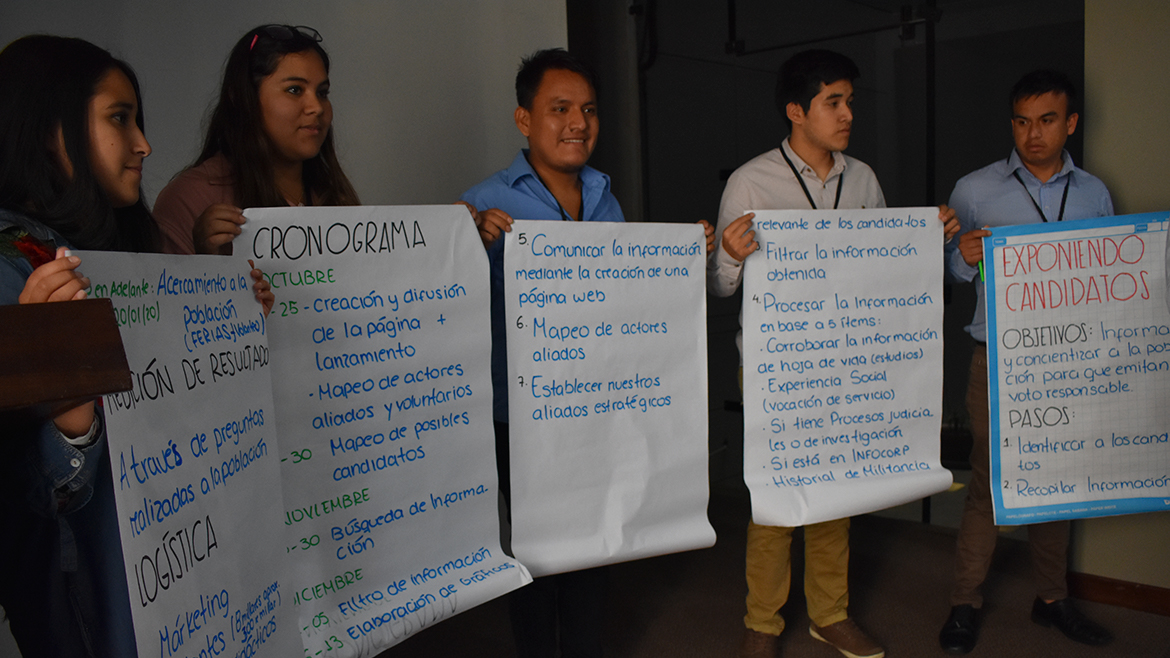 en Adelante: Acercamiento a la
20/01/20) población
(FERIAS y Volanteo)
MEDICIÓN DE RESULTADO
A través de preguntas
realizadas a la población
LOGÍSTICA
Márketing
CRONOGRAMA
OCTUBRE
25 - Creación y difusión
de la página +
lanzamiento
• Mapeo de actores
aliados y voluntarios
-30 Mapeo de posibles
candidatos
NOVIEMBRE
-30 Búsqueda de Informa-
ción
DICIEMBRE
-05 Filtro de información
-13 Elaboración de Gráficos
5. Comunicar la información
mediante la creación de una
página web
6. Mapeo de actores
aliados
7. Establecer nuestros
aliados estratégicos
relevante de los candidatos
Filtrar la información
obtenida
4. Procesar la Información
en base a 5 ítems:
• Corroborar la información
de hoja de vida (estudios)
• Experiencia Social
(vocación de servicio)
• Si tiene Procesos judicia-
les o de investigación
• Si está en INFOCORP
• Historial de Militancia
EXPONIENDO
CANDIDATOS
OBJETIVOS: Informa
y concientizar a la pob
ción para que emitan
voto responsable.
PASOS:
1. Identificar a los cand
tos
2. Recopilar Información